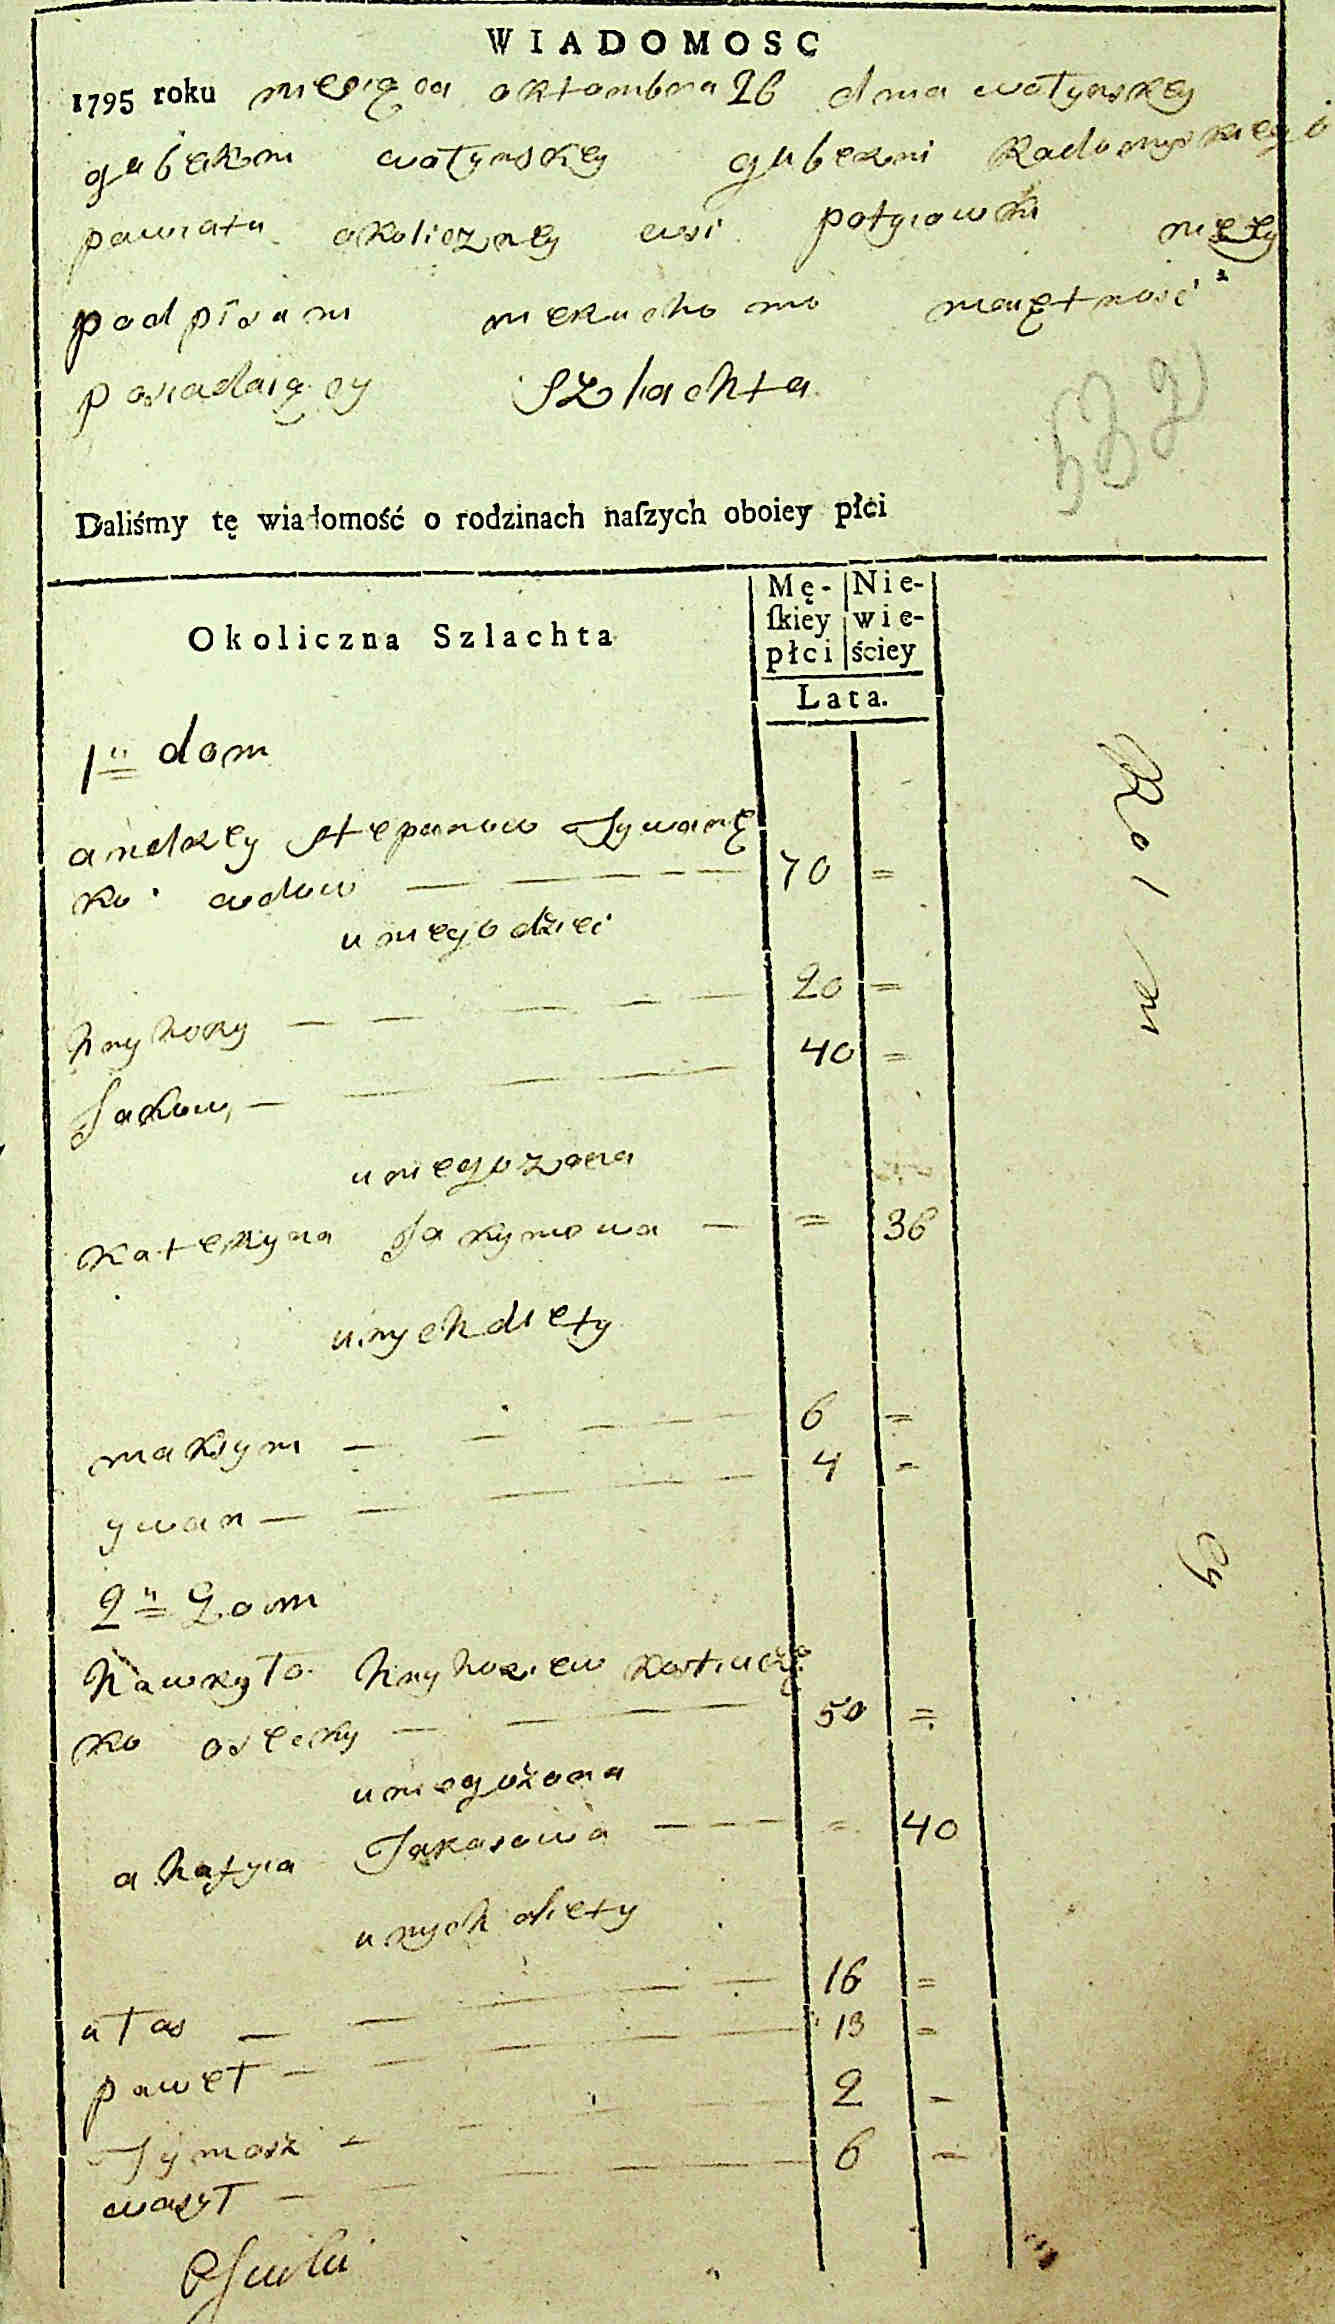 WIADOMOSC
1795 roku miesiąca oktombra 26 dnia wołynskey
guberni wołynskey guberni Radomyskiego
powiatu okoliczney wsi potyiowki niżey
podpisani nieruchomo maiętność
posiadaiący Szlachta
Daliśmy tę wiadomość o rodzinach naſzych oboiey płci
Okoliczna Szlachta
Mę-ſkiey płci
Nie-wie-ściey
Lata.
1ᵘ dom
andrey stepanow Iywanę
ko wdow 70 =
u niego dzieci
hryhory 20 =
Jakow 40 =
u niego żona
Kateryna Jakymowa = 36
u nych diety
maksym 6 =
ywan 4 =
2ᵘ Dom
hawryło hryhoriew
ko osecky 50 =
u niego żona
ahafyia Tarasowa = 40
u nych diety
ułas 16 =
paweł 13 =
Tymosz 2 =
wasył 6 =